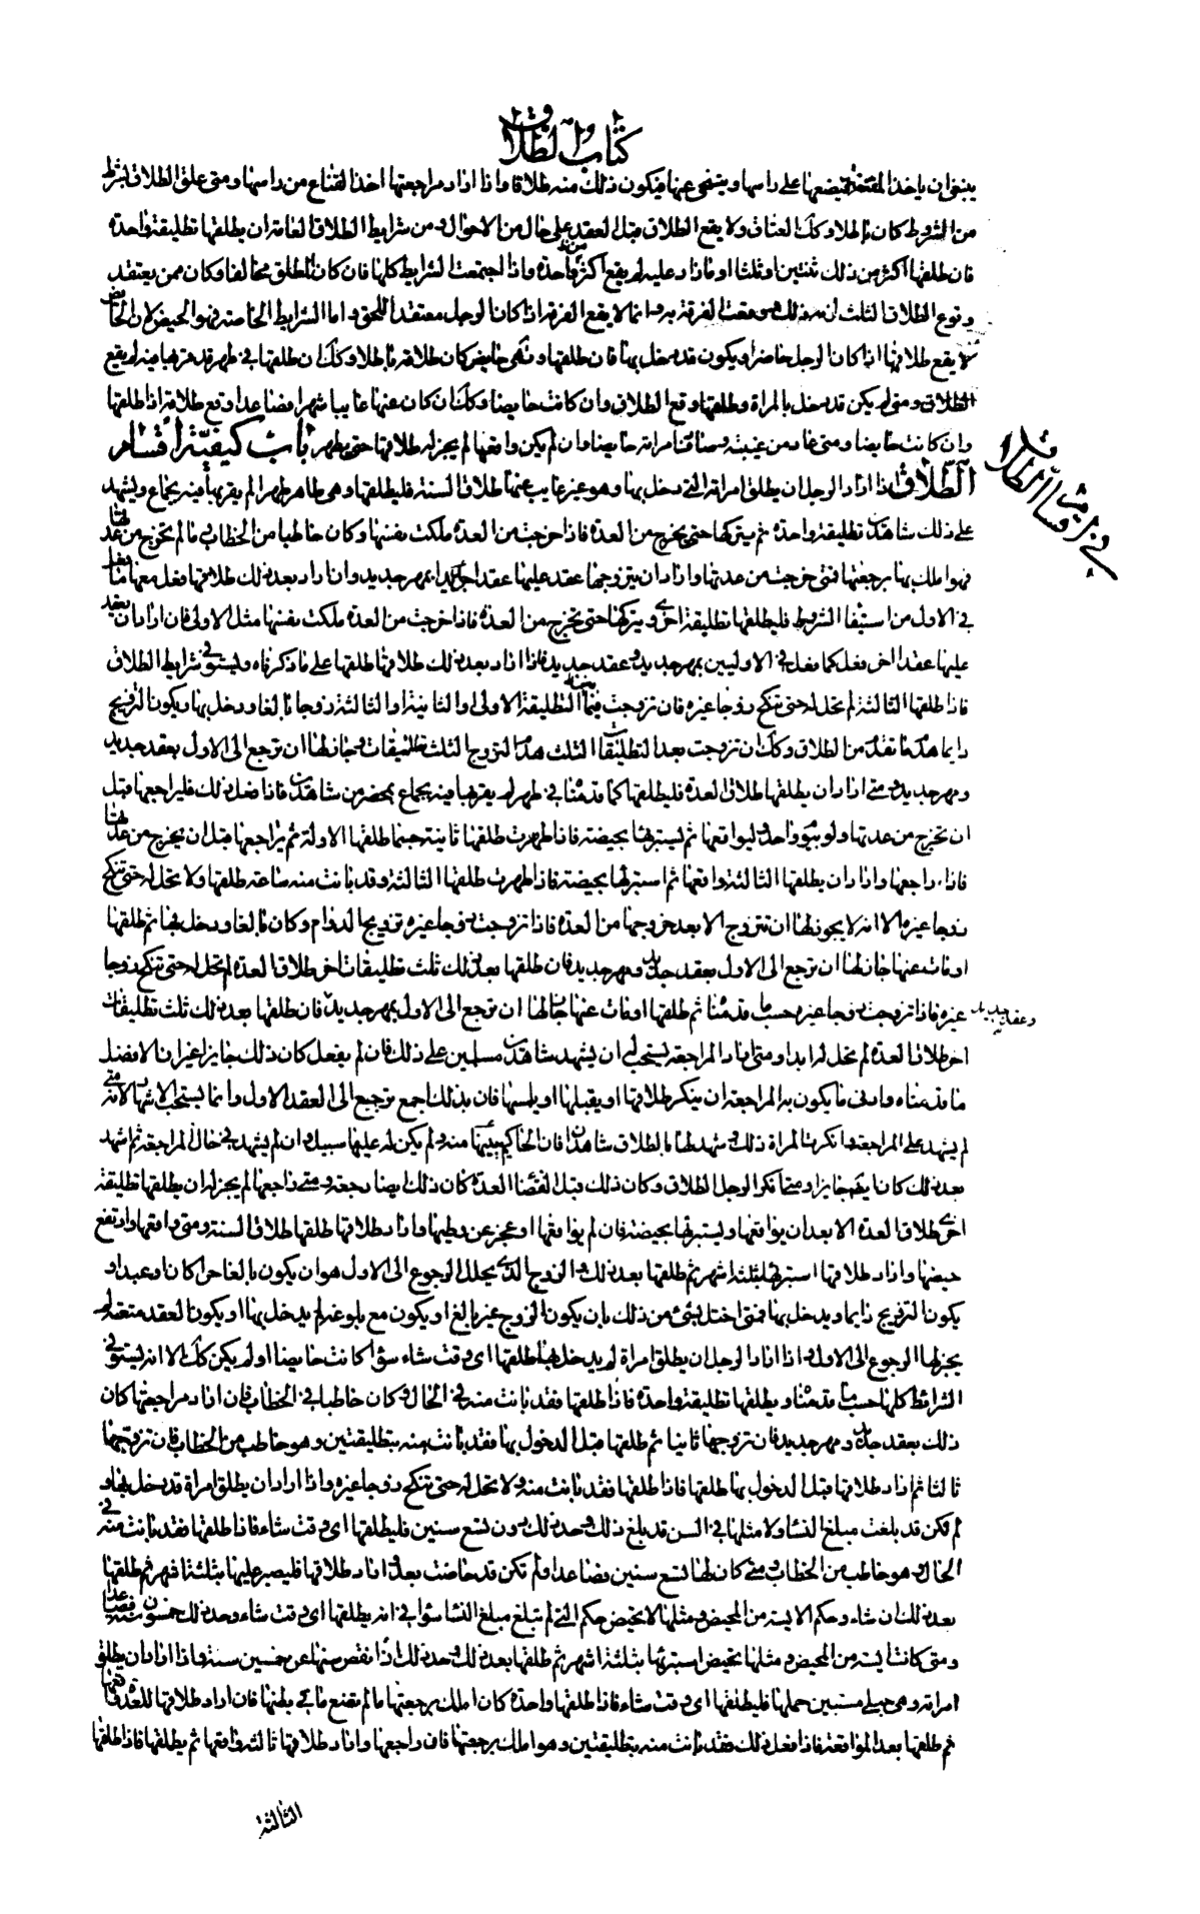 كتاب الطلاق
ينبغى ان ياخذ المقنعة فيضعها على راسها ويتنحى عنها فيكون ذلك منه طلاقا واذا اراد مراجعتها اخذ القناع من راسها ومتى علق الطلاق بشرط
من الشروط كان باطلا وكذلك العتاق ولا يقع الطلاق قبل العقد على حال من الاحوال ومن شرايط الطلاق العامة ان يطلقها تطليقة واحدة
فان طلقها اكثر من ذلك ثنتين او ثلثا او ما زاد عليه لم يقع اكثر من واحدة واذا اجتمعت الشرايط كلها فان كان المطلق مخالفا وكان ممن يعتقد
وقوع الطلاق الثلث لزمه ذلك ووقعت الفرقة به وانما لا يقع الفرقة اذا كان الرجل معتقدا للحق واما الشرايط الخاصة فهو الحيض لان الحائض
لا يقع طلاقها اذا كان الرجل حاضرا ويكون قد دخل بها فان طلقها وهى حايض كان طلاقه باطلا وكذلك ان طلقها فى طهر قد قربها فيه لم يقع
الطلاق ومتى لم يكن قد دخل بالمراة وطلقها وقع الطلاق وان كانت حايضا وكذلك ان كان عنها غايبا شهرا فصاعدا وقع طلاقه اذا طلقها
وان كانت حايضا ومتى عاد من غيبته وصادف امراته حايضا وان لم يكن واقعها لم يجز له طلاقها حتى يطهر باب كيفية اقسام
الطلاق اذا اراد الرجل ان يطلق امراته التى دخل بها وهو غير غايب عنها طلاق السنة فليطلقها وهى طاهر طهرا لم يقربها فيه بجماع ويشهد
على ذلك شاهدين تطليقة واحدة ثم يتركها حتى يخرج من العدة فاذا خرجت من العدة ملكت نفسها وكان خاطبا من الخطاب وما لم تخرج من عدتها
فهو املك بها برجعتها فمتى خرجت من عدتها واراد ان يتزوجها عقد عليها عقدا جديدا بمهر جديد وان اراد بعد ذلك طلاقها فعل معها ما فعل
فى الاول من استيفاء الشروط فليطلقها تطليقة اخرى ويتركها حتى تخرج من العدة فاذا خرجت من العدة ملكت نفسها مثل الاولى فان اراد ان يعقد
عليها عقدا اخر فعل كما فعل فى الاوليين بمهر جديد وعقد جديد فاذا اراد بعد ذلك طلاقها طلقها على ما ذكرناه ويستوفى شرايط الطلاق
فاذا طلقها الثالثة لم تحل له حتى تنكح زوجا غيره فان تزوجت فيما بين التطليقة الاولى او الثانية او الثالثة زوجا بالغا ودخل بها ويكون التزويج
دايما هدم ما تقدم من الطلاق وكذلك ان تزوجت بعد التطليقات الثلث هدم الزوج الثلث تطليقات وجاز لها ان ترجع الى الاول بعقد جديد
ومهر جديد ومتى اراد ان يطلقها طلاق العدة فليطلقها كما قدمناه فى طهر لم يقربها فيه بجماع بمحضر من شاهدين فاذا فعل ذلك فليراجعها قبل
ان تخرج من عدتها ولو بيوم واحد ثم ليواقعها ثم ليستبرئها بحيضة فاذا طهرت طلقها ثانية حسبما طلقها الاولة ثم يراجعها قبل ان يخرج من عدتها
فاذا راجعها واراد ان يطلقها الثالثة واقعها ثم استبرئها بحيضة فاذا طهرت طلقها الثالثة وقد بانت منه ساعة طلقها ولا تحل له حتى تنكح
زوجا غيره الا انه لا يجوز لها ان تتزوج الا بعد خروجها من العدة فاذا تزوجت زوجا غيره تزويج الدوام وكان بالغا ودخل بها ثم طلقها
او مات عنها جاز لها ان ترجع الى الاول بعقد جديد ومهر جديد فان طلقها بعد ذلك ثلث تطليقات اخر طلاق العدة لم تحل له حتى تنكح زوجا
غيره فاذا تزوجت زوجا غيره حسب ما قدمناه ثم طلقها او مات عنها جاز لها ان ترجع الى الاول بمهر جديد فان طلقها بعد ذلك ثلث تطليقات
وعقد جديد
اخر طلاق العدة لم تحل له ابدا ومتى اراد المراجعة يستحب له ان يشهد شاهدين مسلمين على ذلك فان لم يفعل كان ذلك جايزا غير ان الافضل
ما قدمناه وادنى ما يكون به المراجعة ان ينكر طلاقها او يقبلها او يلمسها فان بذلك اجمع ترجع الى العقد الاول وانما يستحب الاشهاد لانه متى
لم يشهد على المراجعة وانكرت المراة ذلك وشهد لها بالطلاق شاهدان فان الحاكم يبينها منه ولم يكن له عليها سبيل وان لم يشهد فى حال المراجعة ثم اشهد
بعد ذلك كان ايضا جايزا ومتى انكر الرجل الطلاق وكان ذلك قبل انقضاء العدة كان ذلك ايضا رجعة ومتى راجعها لم يجز له ان يطلقها تطليقة
اخرى طلاق العدة الا بعد ان يواقعها ويستبرئها بحيضة فان لم يواقعها او عجز عن وطيها واراد طلاقها طلقها طلاق السنة ومتى واقعها وارتفع
حيضها واراد طلاقها استبرئها بثلثة اشهر ثم طلقها بعد ذلك والزوج الذى يحلل الرجوع الى الاول هو ان يكون بالغا حرا كان او عبدا و
يكون التزويج دايما ويدخل بها فمتى اختل شىء من ذلك بان يكون الزوج غير بالغ او يكون مع بلوغه لم يدخل بها او يكون العقد متعة لم
يجز لها الرجوع الى الاول واذا اراد الرجل ان يطلق امراة لم يدخل بها طلقها اى وقت شاء سواء كانت حايضا او لم يكن كذلك الا انه يستوفى
الشرائط كلها حسب ما قدمناه ويطلقها تطليقة واحدة فاذا طلقها فقد بانت منه فى الحال وكان خاطبا فى الخطاب فان اراد مراجعتها كان
ذلك بعقد جديد ومهر جديد فان تزوجها ثانيا ثم طلقها قبل الدخول بها فقد بانت منه بتطليقتين وهو خاطب من الخطاب فان تزوجها
ثالثا ثم اراد طلاقها قبل الدخول بها طلقها فاذا طلقها فقد بانت منه ولا تحل له حتى تنكح زوجا غيره واذا اراد ان يطلق امراة قد دخل بها و
لم تكن قد بلغت مبلغ النساء ولا مثلها فى السن قد بلغ ذلك وحد ذلك دون تسع سنين فليطلقها اى وقت شاء فاذا طلقها فقد بانت منه فى
الحال وهو خاطب من الخطاب ومتى كان لها تسع سنين فصاعدا ولم تكن قد حاضت بعد واراد طلاقها فليصبر عليها بثلثة اشهر ثم طلقها
بعد ذلك ان شاء وحكم الايسة من المحيض ومثلها لا تحيض حكم التى لم تبلغ مبلغ النساء سواء فى انه يطلقها اى وقت شاء وحد ذلك خمسون سنة فصاعدا
ومتى كانت ايسة من المحيض ومثلها تحيض استبرئها بثلثة اشهر ثم طلقها بعد ذلك وحد ذلك اذا نقص سنها عن خمسين سنة واذا اراد ان يطلق
امراته وهى حبلى مستبين حملها فليطلقها اى وقت شاء فاذا طلقها واحدة كان املك برجعتها ما لم تضع ما فى بطنها فان اراد طلاقها للعدة واقعها
ثم طلقها بعد المواقعة فاذا فعل ذلك فقد بانت منه بتطليقتين وهو املك برجعتها فان راجعها واراد طلاقها ثالثة واقعها ثم يطلقها فاذا طلقها
الثالثة
فى اقسام الطلاق